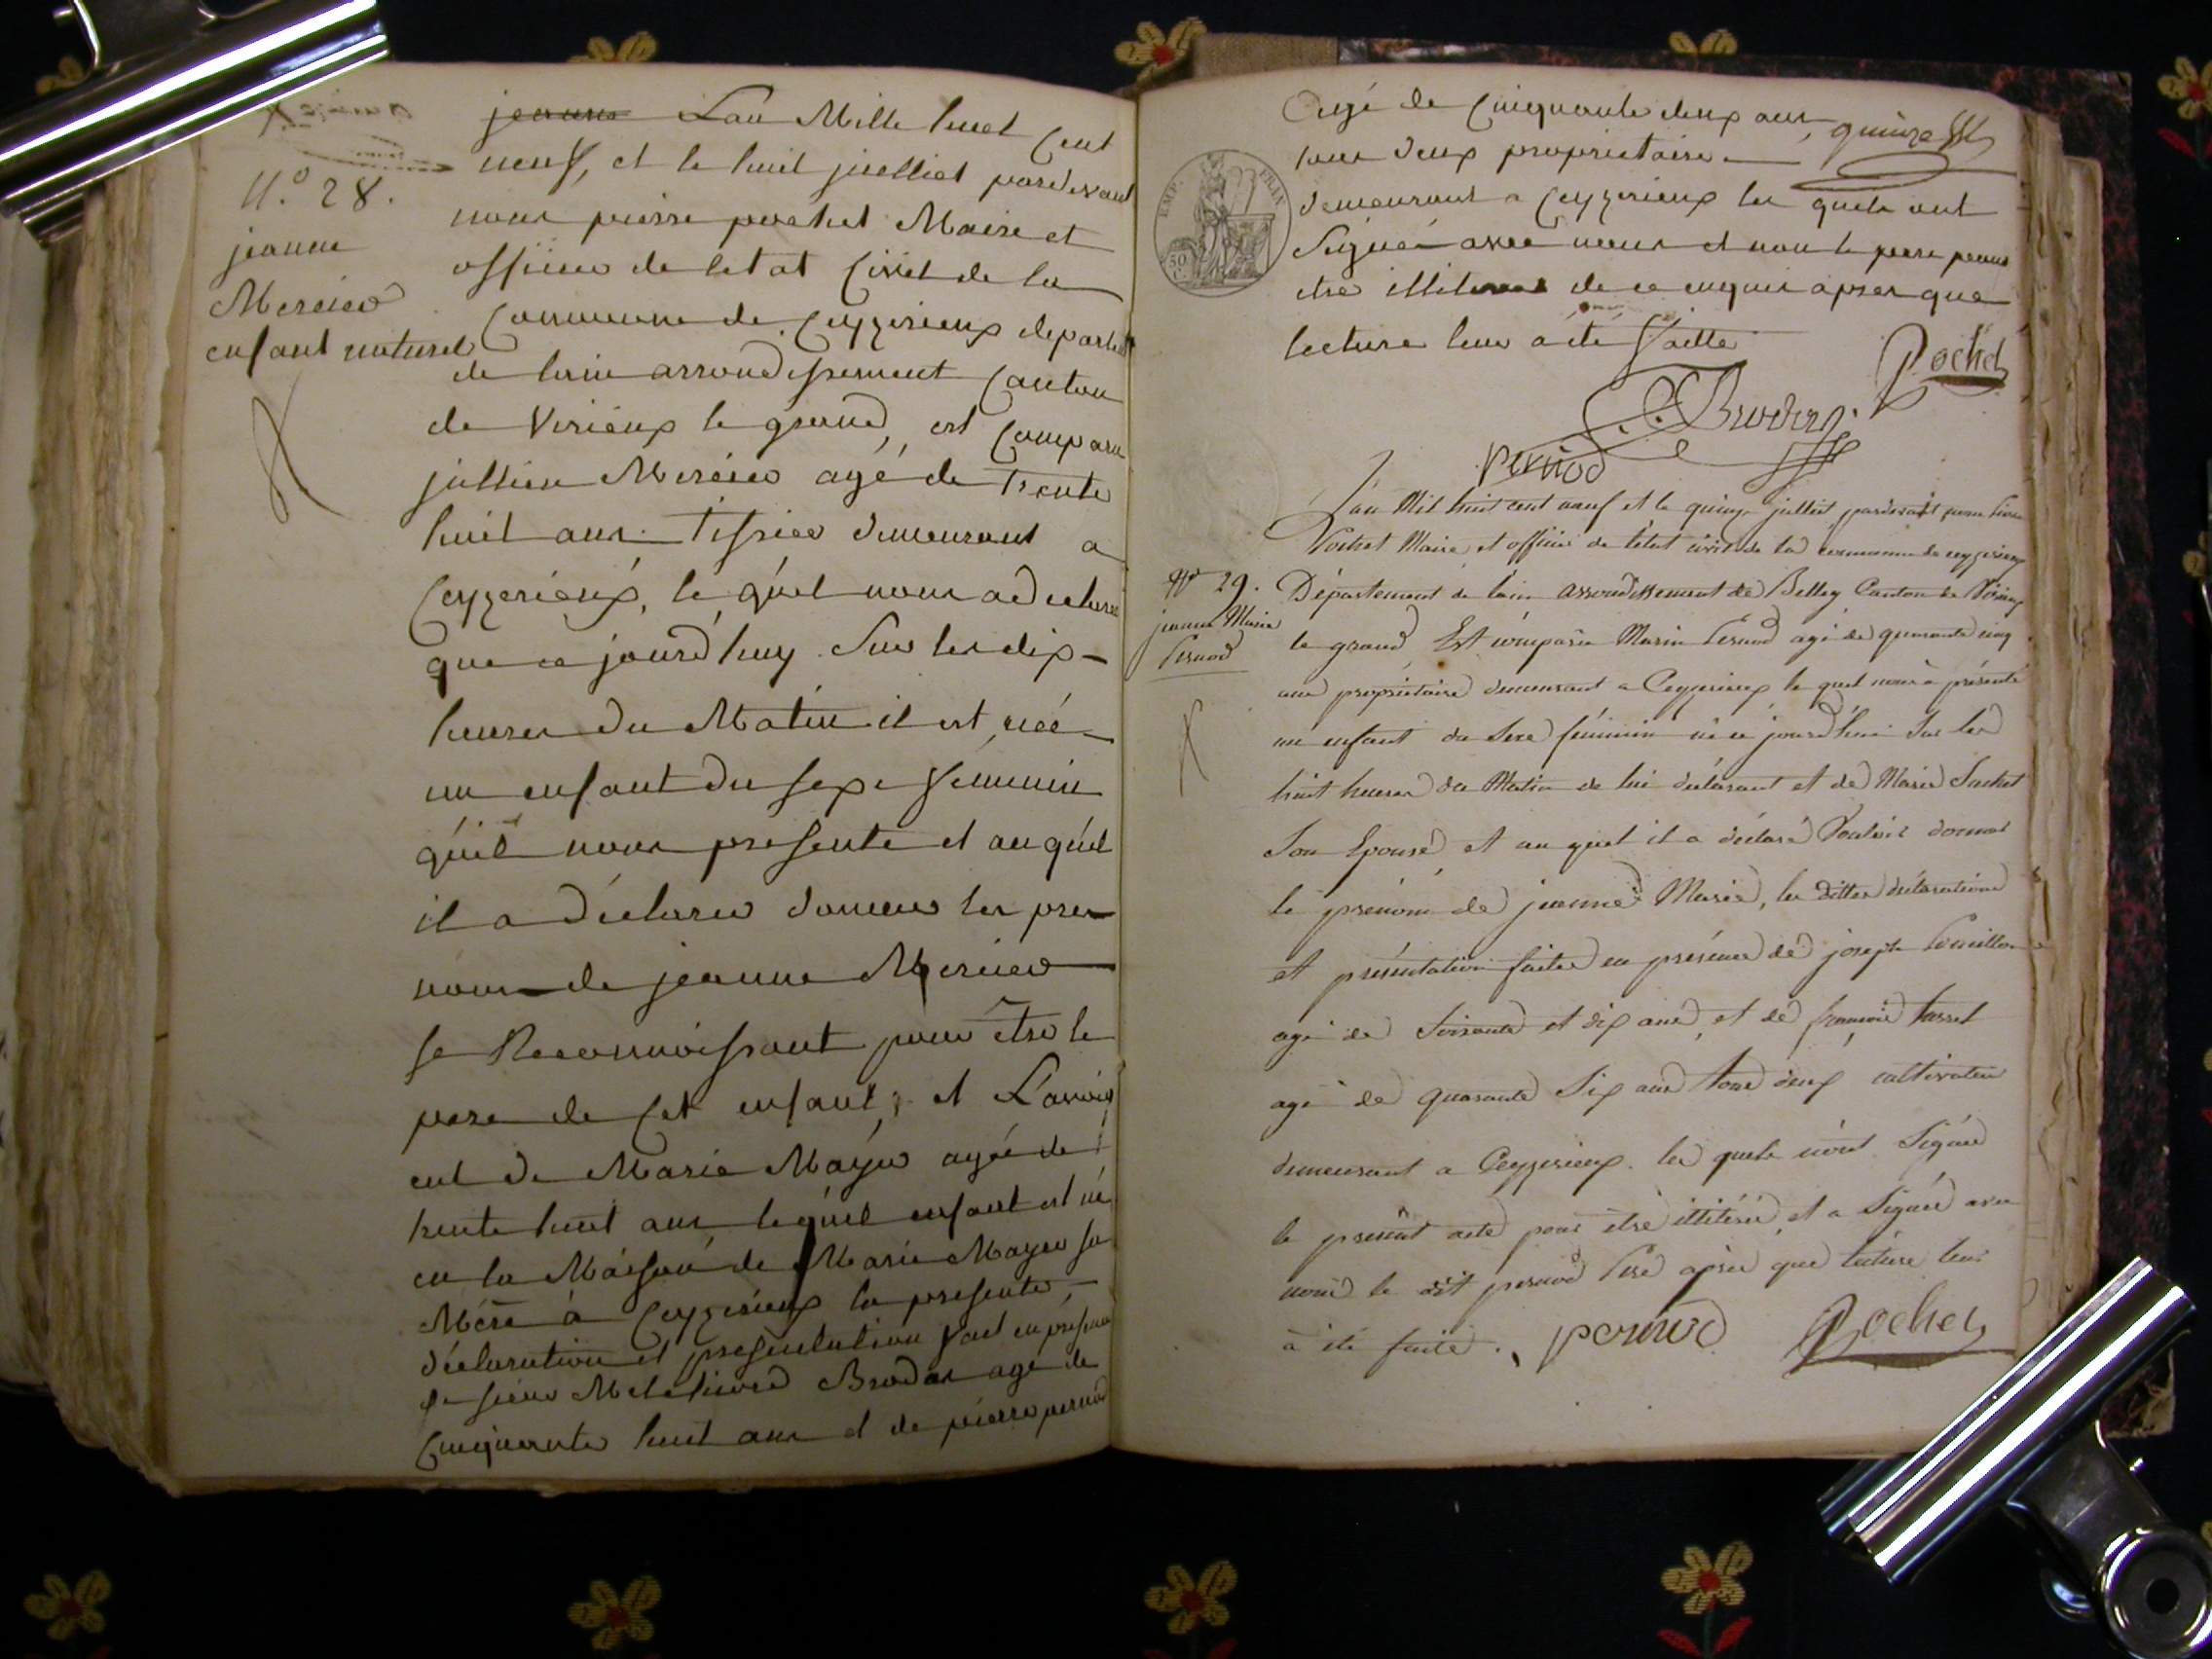 N.° 28.
jeanne
Mercier
enfant naturel
jeanne Lan Mille huet Cent
neuf, et le huit juelliet pardevant
nous pierre pochet Maire et
officier de letat Civil de la
Commune de Ceyzerieux depart
de lain arrondissement Canton
de Virieux le grand, est Comparu
jullien Mercier agé de Trente
huit ans Tissier demeurant a
Ceyzerieux, le quel nous a declaré
que ce jourd'huy Sur les dix
heures du Matin il est néé
un enfant du sexe feminin
qúil nous presente et auquel
il a déclarer donner les pre
noms de jeanne Mercier
se Reconnoissant pour être le
pere de Cet enfant, et L'avoir
eut de Marie Mayer agée de
trente huit ans, lequel enfant est né
en la Maison de Marie Mayer sa
Mére à Ceyzerieux la presente,
déclaration et presentation fait en présence
de sieur Brodar agé de
Cinquante huit ans et de pierre pernod
Cagé de Cinquante deux ans, quinze
tous deux proprietaire
demeurant a Ceyzerieux les quels ont
Signé avec nous et non le pere pour
etre illiteré de ce enquis apres que
lecture leur a été faitte
Pochet
Brodar
Pernod
Lan Mil huit cent neuf et le quinze juillet pardevant nous Pierre
Pochet Maire et officier de l'état civil de la commune de ceyzerieux
N° 29.
jeanne Marie
Pernod
Département de lain arrondissement de Belley Canton de Virieux
le grand Est comparu Marin Pernod agé de quarante cinq
ans propriétaire demeurant a Ceyzerieux le quel nous à présenté
un enfant du Sexe féminin né ce jourd'hui Sur les
huit heures du Matin de lui déclarant et de Marie Sachet
Son Epouse, et au quel il a déclaré Vouloir donner
le prénom de jeanne Marie, les dittes déclaration
et présentation faites en présence de joseph
agé de Soixante et dix ans, et de françois
agé de quarante Six ans tous deux cultivateur
demeurant a Ceyzerieux. les quels n'ont Signés
le présent acte pour être illitéré, et a Signé avec
nous le dit pernod Pere après que lecture leur
à été faite. pernod Pochet